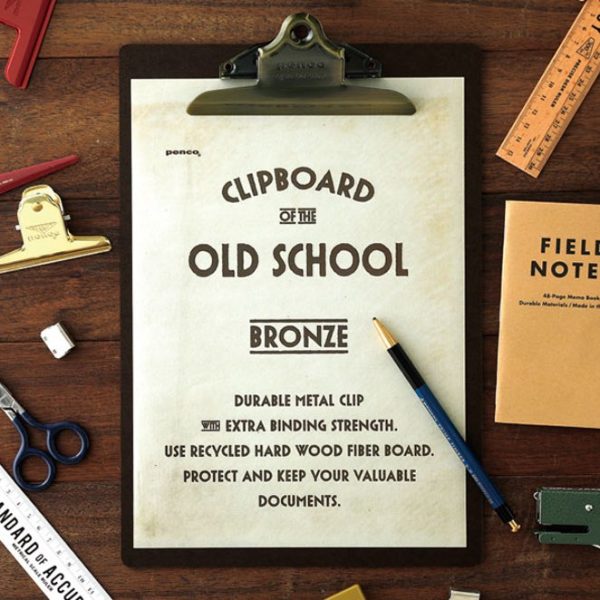 penco
penco
CLIPBOARD
OF THE
OLD SCHOOL
BRONZE
DURABLE METAL CLIP
WITH EXTRA BINDING STRENGTH.
USE RECYCLED HARD WOOD FIBER BOARD.
PROTECT AND KEEP YOUR VALUABLE
DOCUMENTS.
FIELD
NOTE
48-Page Memo Book
Durable Materials / Made in the
STANDARD OF ACCU
METRICAL SCALE RULER